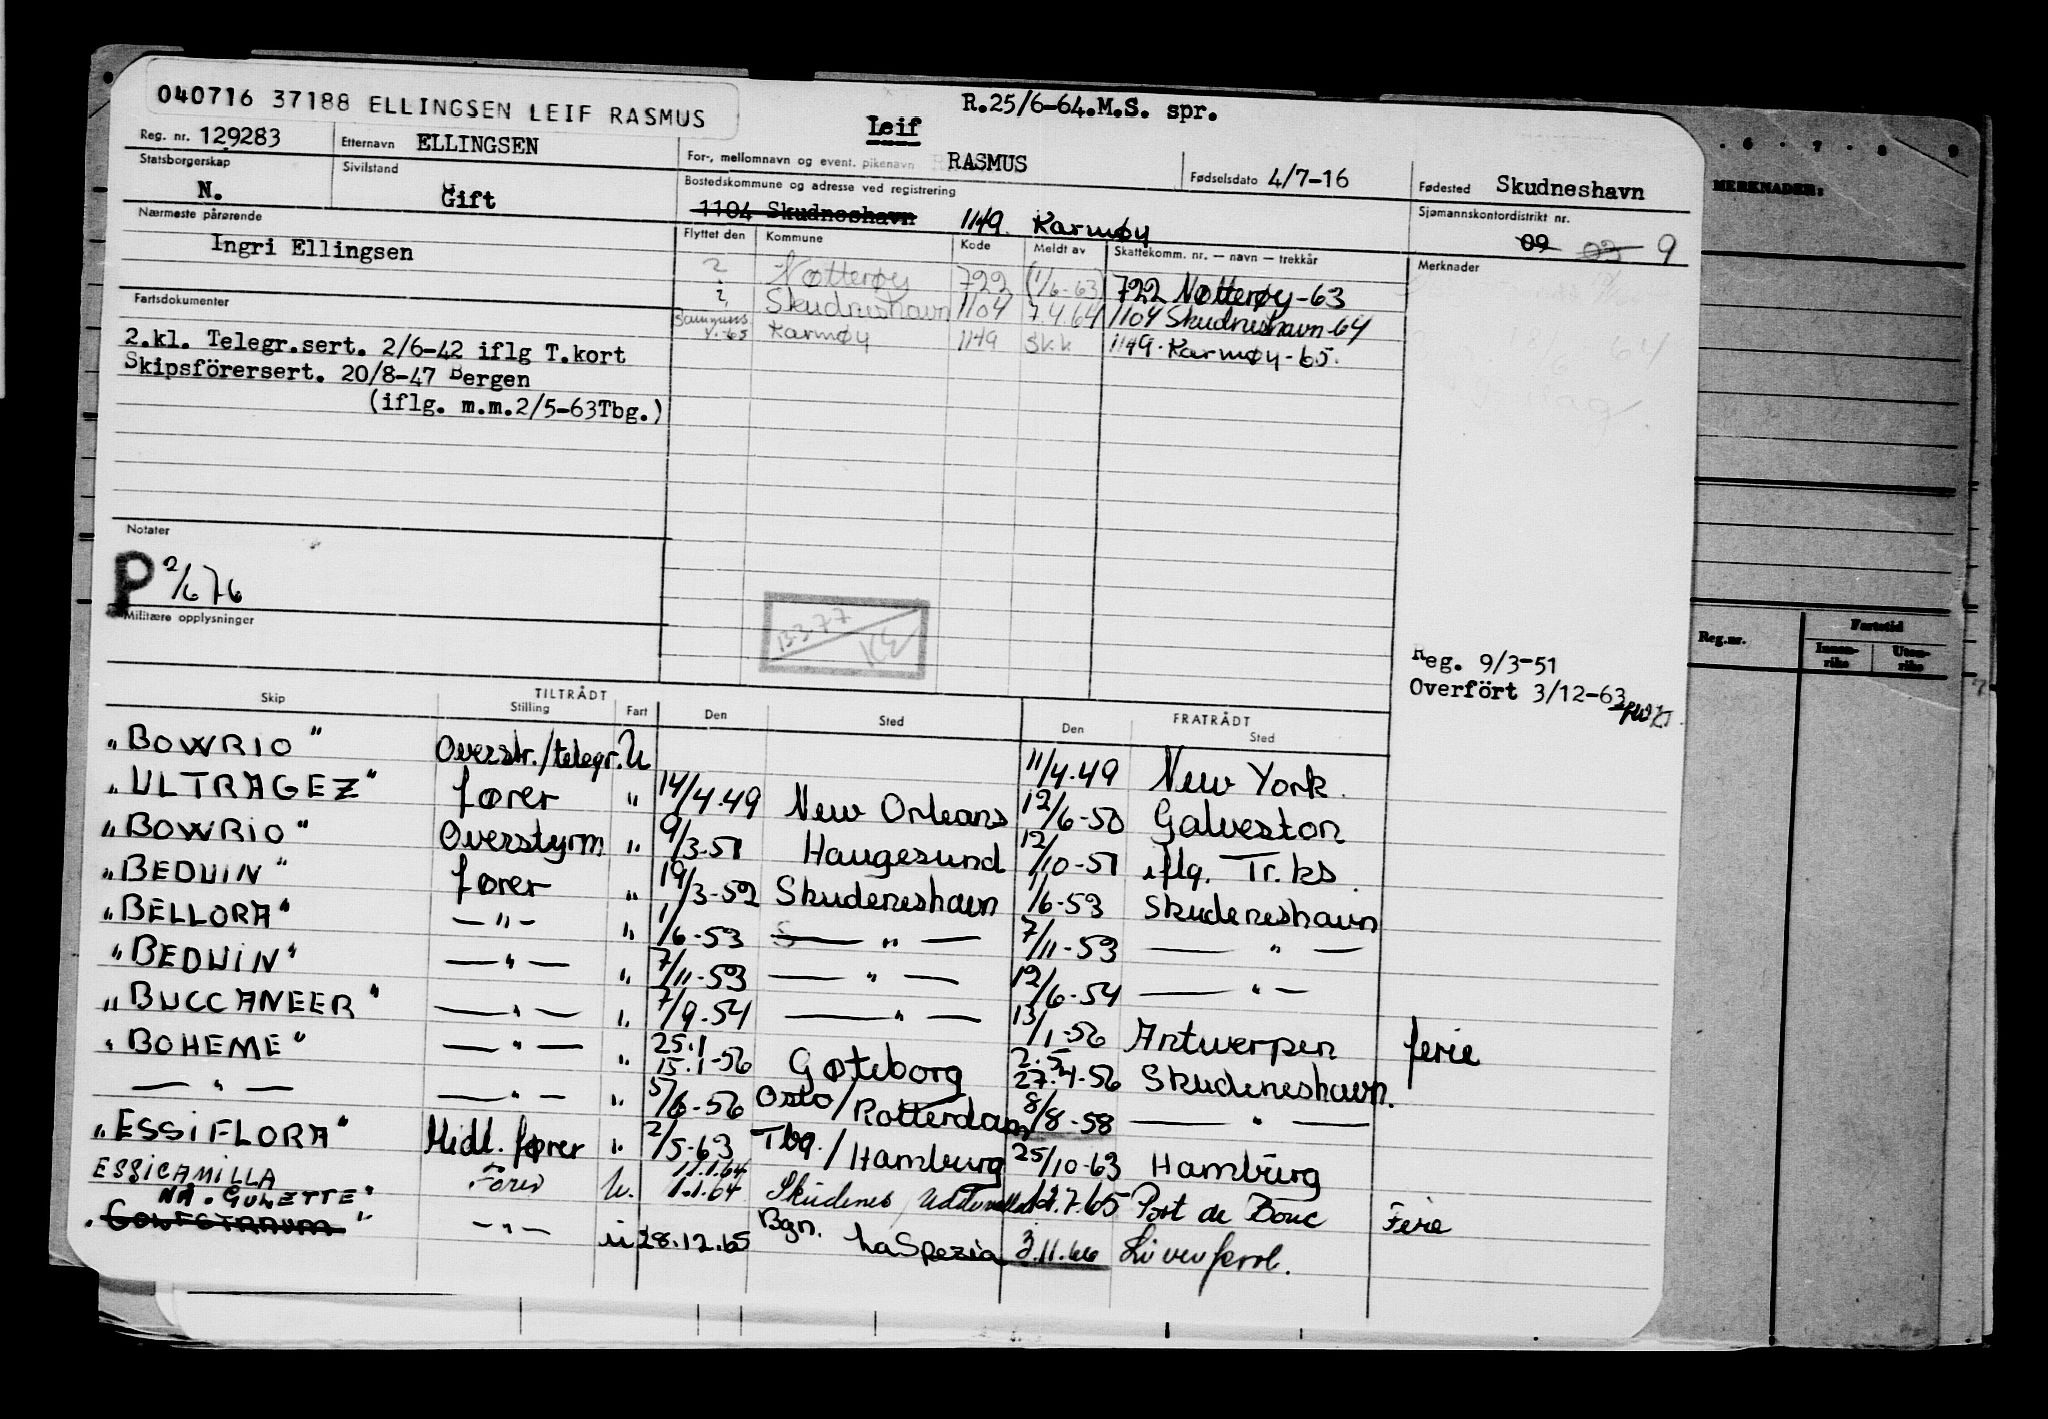 040716 37188 ELLINGSEN LEIF RASMUS
R.25/6-64.M.S. spr.
Reg. nr. 129283 Etternavn ELLINGSEN For-, mellomnavn og event. pikenavn Leif RASMUS Fødselsdato 4/7-16 Fødested Skudneshavn
Statsborgerskap N. Sivilstand Gift Bostedskommune og adresse ved registrering 1104 Skudneshavn 1149. Karmøy Sjømannskontordistrikt nr. 09 03 9
Nærmeste pårørende Ingri Ellingsen
Flyttet den Kommune Kode Meldt av Skattekomm. nr. — navn — trekkår Merknader
? Nøtterøy 722 (1/6-63) 722 Nøtterøy-63
? Skudneshavn 1104 7.4.64 1104 Skudneshavn-64
1.65 Karmøy 1149 sk.k 1149. Karmøy-65.
Fartsdokumenter
2.kl. Telegr.sert. 2/6-42 iflg T.kort
Skipsförersert. 20/8-47 Bergen
(iflg. m.m.2/5-63Tbg.)
Notater
P 2/6 76
Militære opplysninger
B377
KE
Reg. 9/3-51
Overfört 3/12-63
TILTRÅDT FRATRÅDT
Skip Stilling Fart Den Sted Den Sted
"BOWRIO" Overstr./telegr. U 11/4.49 New York.
"ULTRAGEZ" fører " 14/4.49 New Orleans 12/6-50 Galveston
"BOWRIO" Overstyrm " 9/3-51 Haugesund 12/10-51 iflg. Tr.ks.
"BEDUIN" fører " 19/3-52 Skudeneshavn 1/6-53 Skudeneshavn
"BELLORA" — " — " 1/6-53 — " — 7/11-53 — " —
"BEDUIN" — " — " 7/11-53 — " — 12/6-54 — " —
"BUCCANEER" — " — " 7/9.54 — " — 13/1-56 Antwerpen ferie
"BOHEME" — " — " 25.1 15.1-56 Gøteborg 2.5 27.4-56 Skudeneshavn.
— " — — " — " 5/6-56 Oslo/Rotterdam 8/8-58 — " —
"ESSI FLORA" Midl. fører " 2/5-63 Tbg./Hamburg 25/10-63 Hamburg
ESSI CAMILLA Fører U. 11.1.64 1.1.64 Skudenes / Uddevalla 7.65 Port de Bouc Ferie
NÅ. GULETTE"
" — " — U 28.12.65 Bgn. La Spezia 3.11.66
MERKNADER:
Reg.nr.
Fartstid
Innen-
riks
Uten-
riks